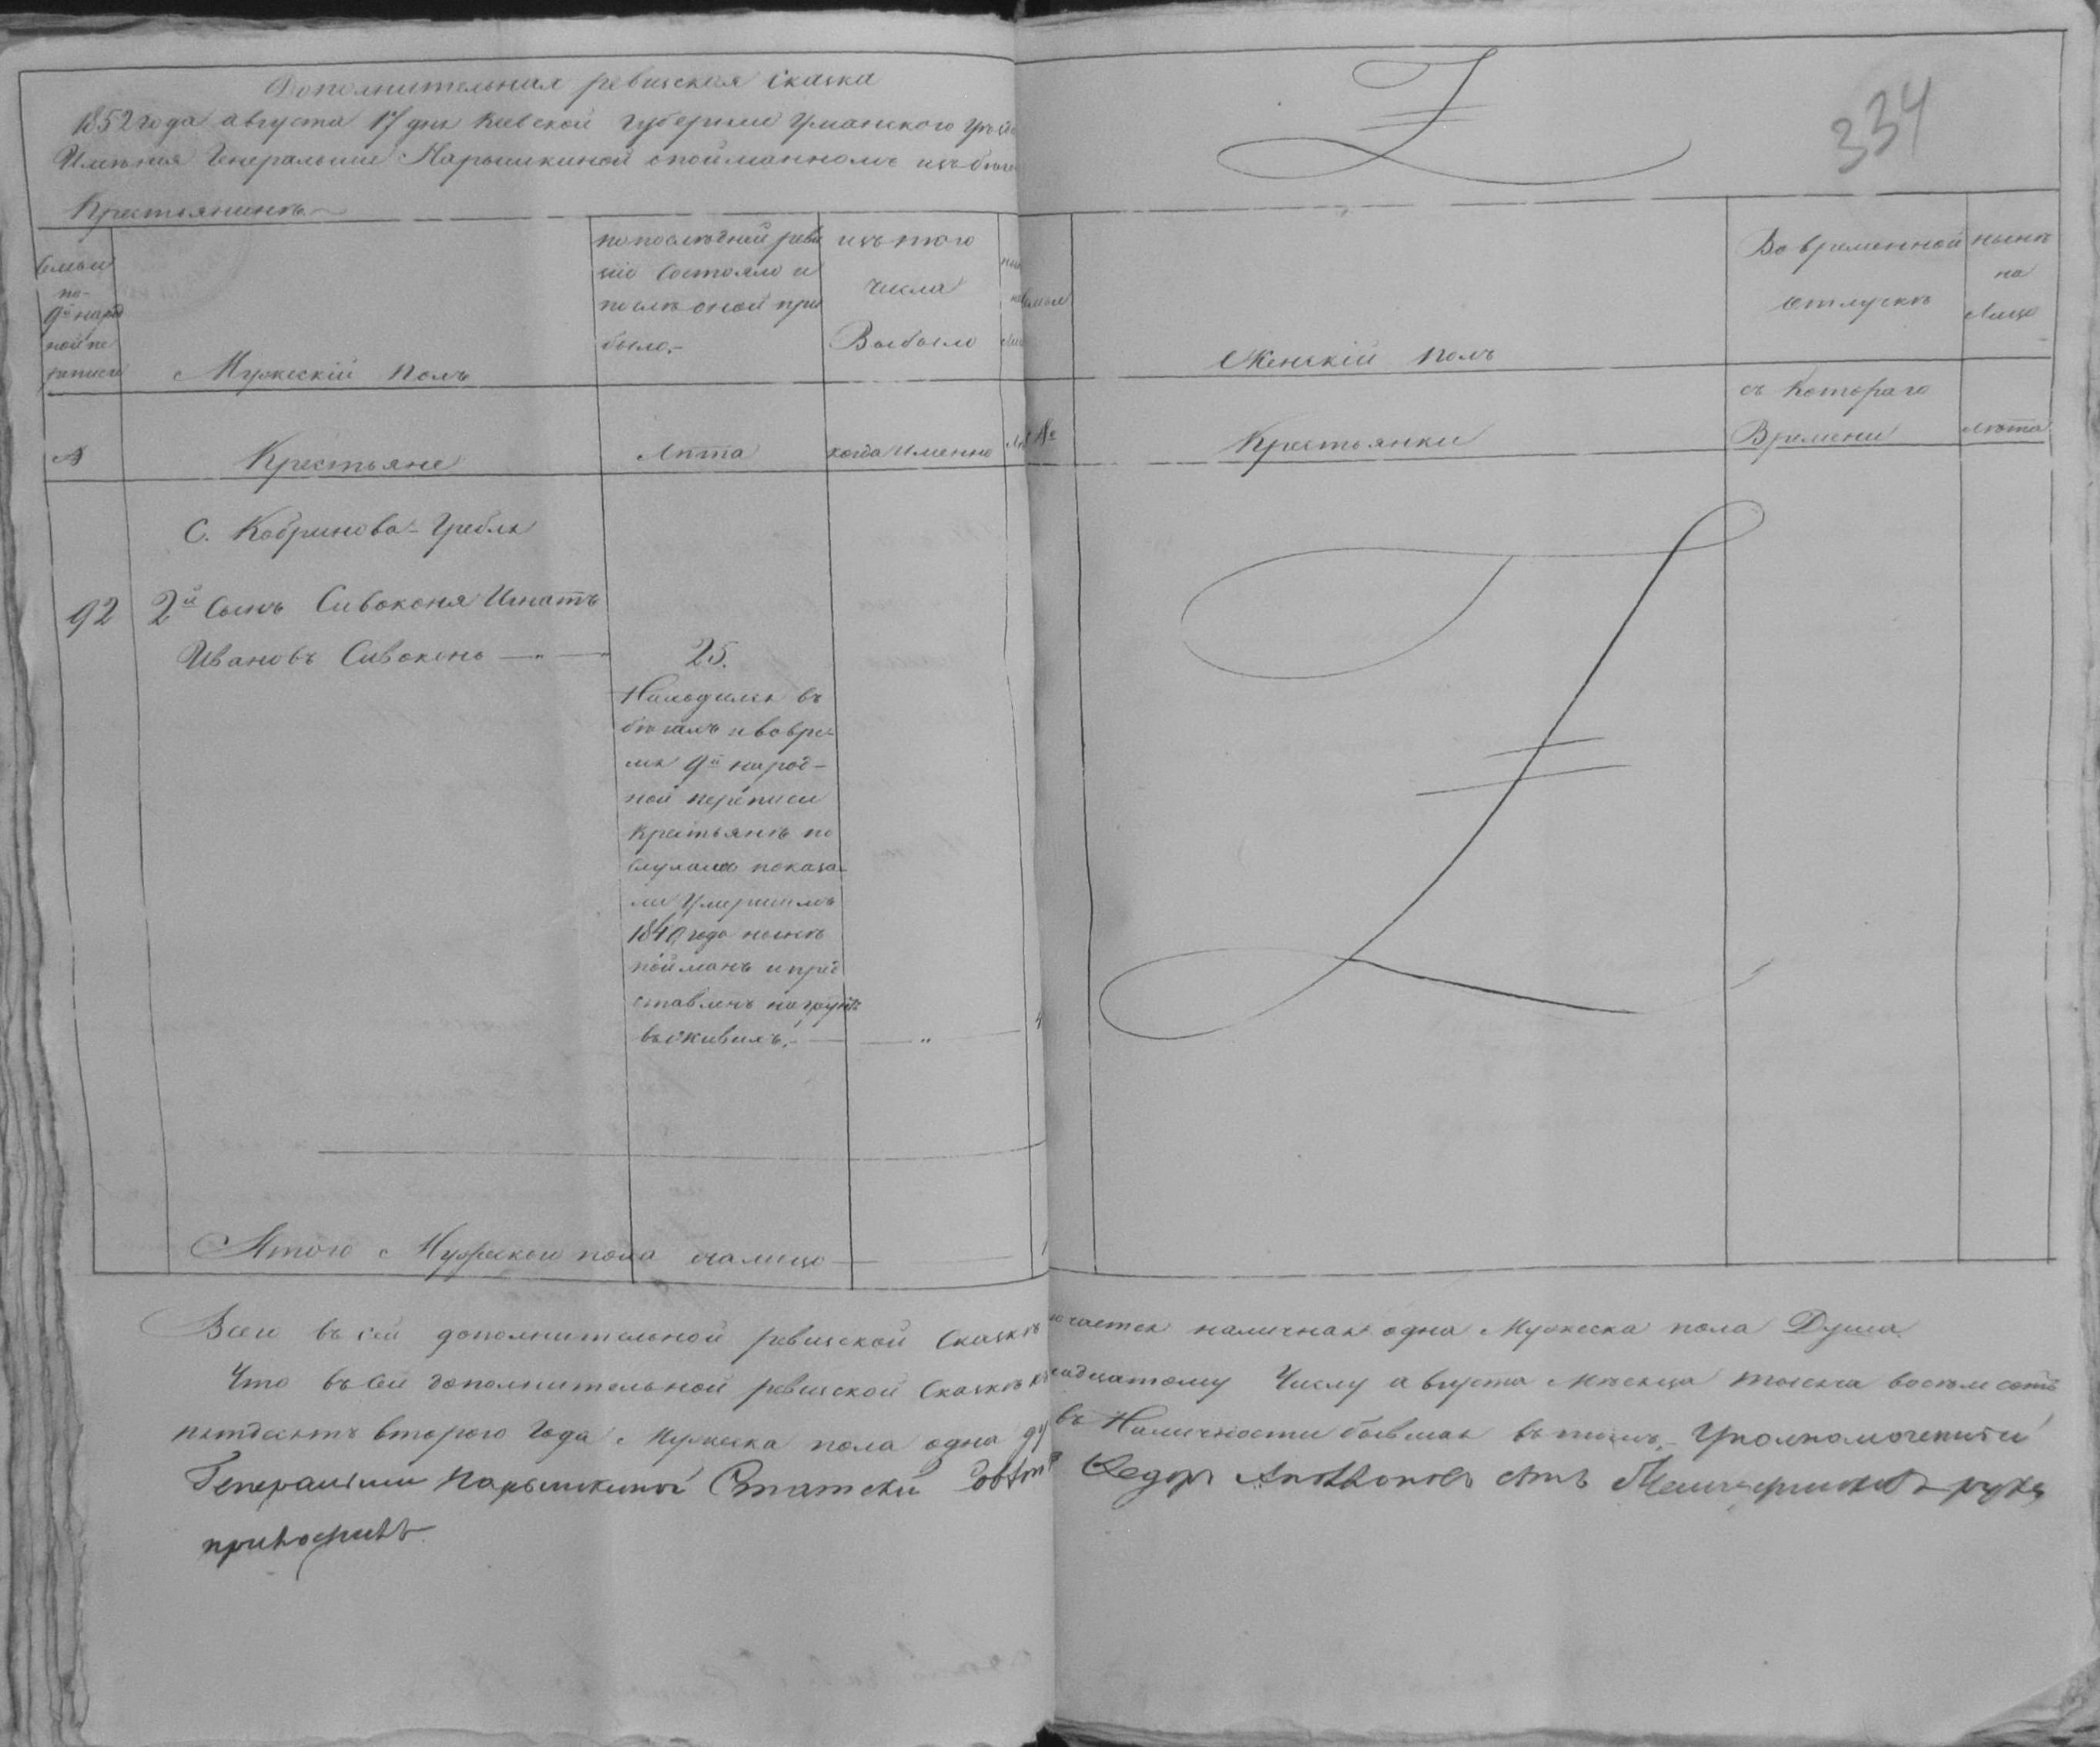 Дополнительная ревизская сказка
1852 года августа 17 дня Киевской губернии Уманского уѣзд
Имѣния Генеральши Нарышкиной о пойманномъ изъ бѣгов
Крестьянинѣ
334
Семьи
по
9й народ
ной пе
реписи
Мужескій полъ
по послѣдней реви
зіи состояло и
послѣ оной при
было.
изъ того
числа
Выбыло
Семьи
Женскій полъ
Во временной
отлускѣ
нынѣ
на
лицо
№
Крестьяне
Лѣта
когда именно
№
Крестьянки
съ котораго
Времени
лѣта
С. Кобринова-Гребля
92
2й сынъ Сивоконя Игнатъ
Ивановъ Сивоконь
25.
Находился въ
бѣгахъ и во вре-
мя 9й народ-
ной переписи
крестьянѣ по
слухамъ показа-
ли умершимъ
184 года нынѣ
пойманъ и пред
ставленъ на грунтъ
въ живыхъ.
Итого Мужескаго пола налицо
1
Всего въ сей дополнительной ревизской сказкѣ
чается наличная одна Мужеска пола Душа
Что въ сей дополнительной ревизской сказкѣ къ
надцатому Числу августа Мѣсяца тысяча восемсотъ
пятдесятъ второго года Мужеска пола одна ду
въ Наличности бывшая въ томъ Уполномоченный
Генеральши Нарышкиной Статскій Совѣтн
Федоръ сынъ руку
приложилъ